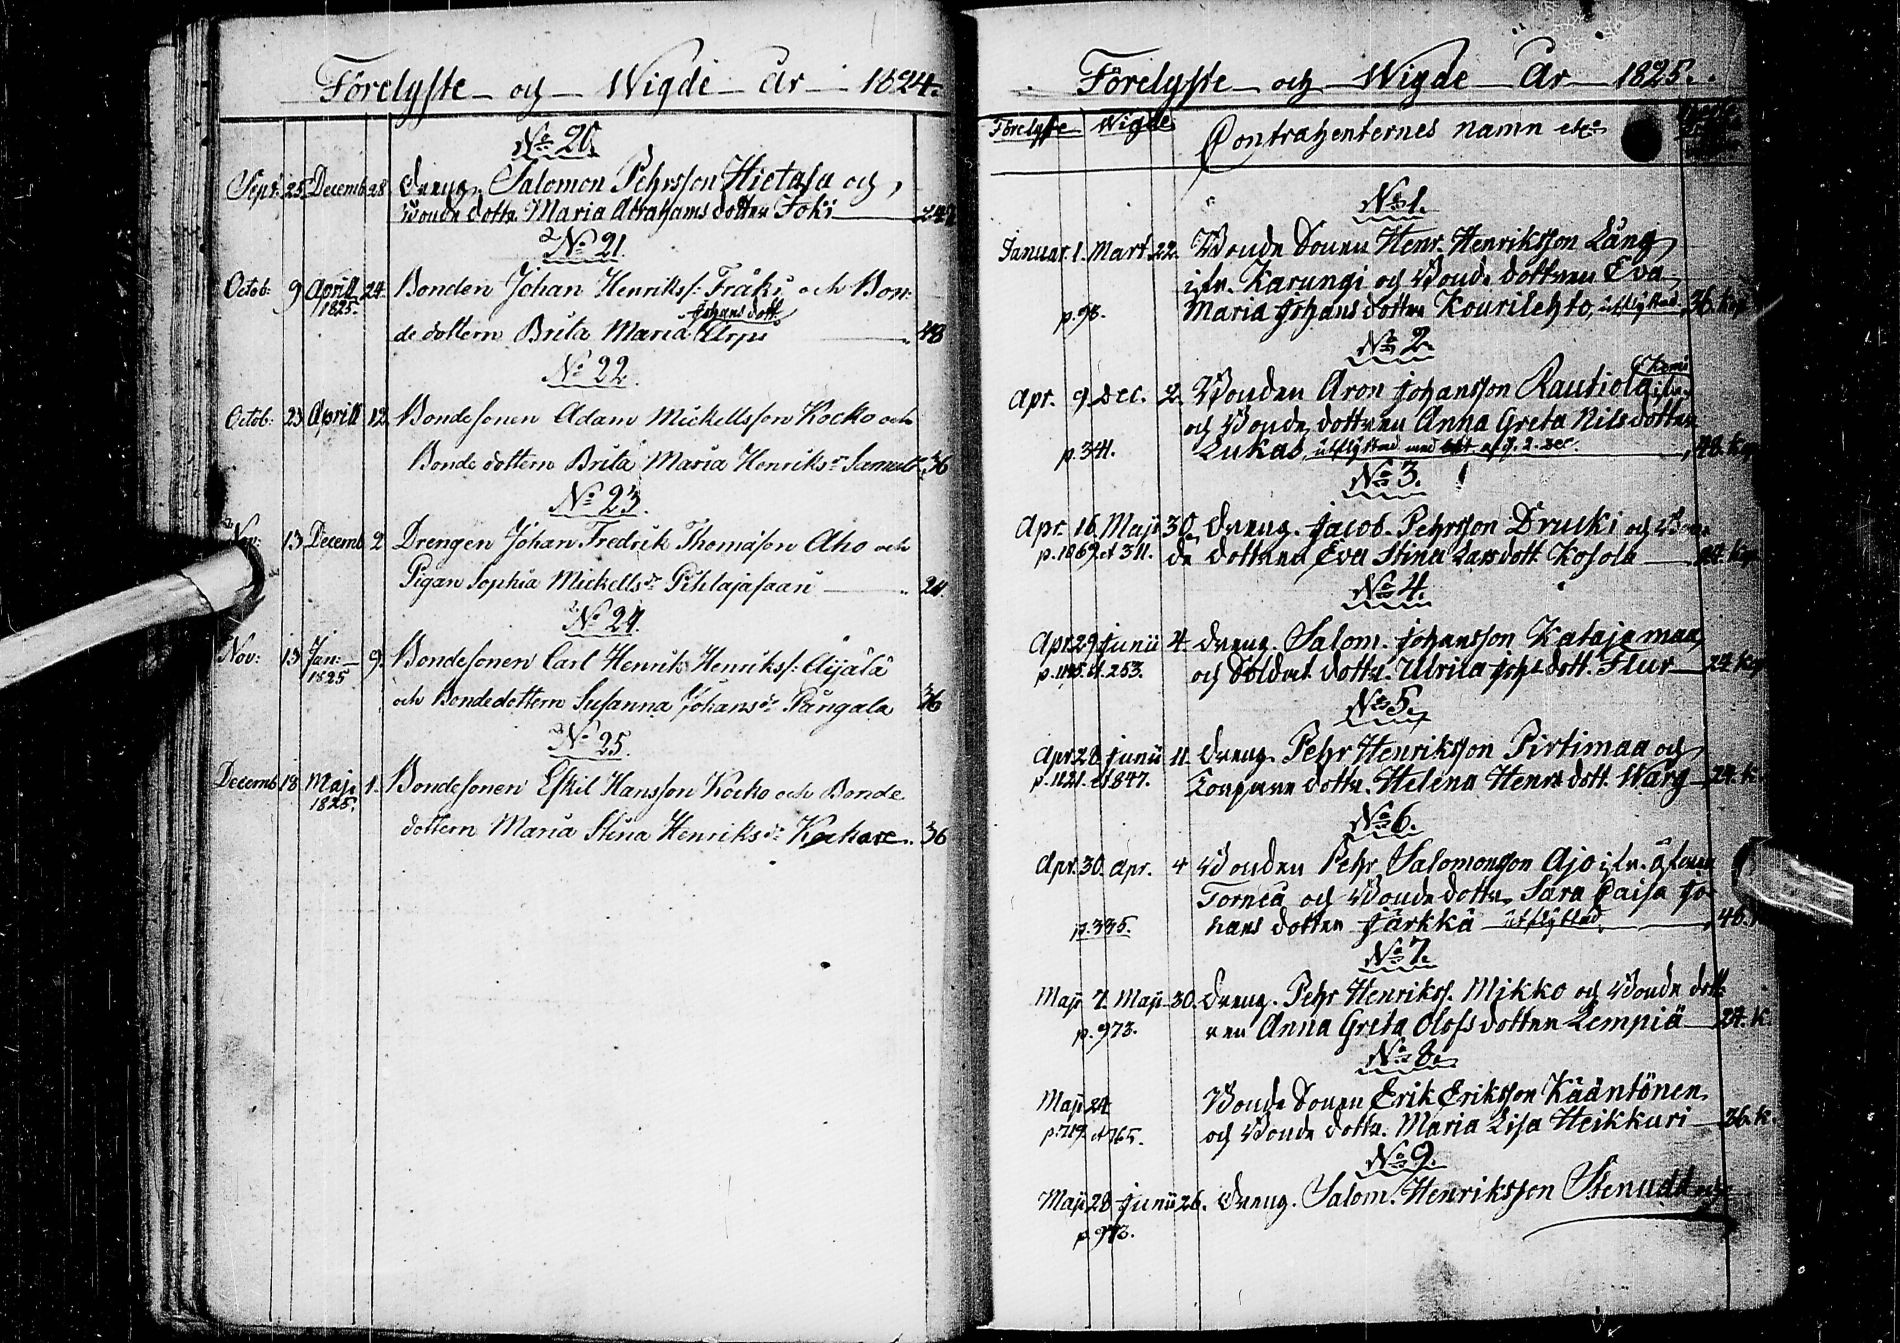 Förelyste och Wigde År 1824.
No 20.
Sept: 25 Decemb 28 Dreng. Salomon Pehrsson Hietaja och
Bonde dottr. Maria Abrahams dotter Joki 24
No 21.
Octob: 9 Aprill 24 Bonden Johan Henrikss: Fräki och Bon:
1825.
Johans dott
de dottern Brita Maria Arpi 48
No 22.
Octob: 23 Aprill 12 Bondesonen Adam Mickellsson Kocko och
Bonde dottern Brita Maria Henriks dr 36
No 23.
Nov: 13 Decemb 2 Drengen Johan Fredrik Thomasson Aho och
Pigan Sophia Mickells dr Pihlajasaari 24
No 24.
Nov: 13 Jan: 9. Bondesonen Carl Henrik Henrikss: Äijälä
1825
och Bondedottern Susanna Johans dr Pängälä 36
No 25.
Decemb 18 Maji 1. Bondesonen Eskil Hansson Kocko och Bonde
1825.
dottern Maria Stina Henriks dr 36
Förelyste och Wigde År 1825.
Förelyste Wigde Contrahenternes namn etc.
No 1.
Januar. 1. Mart. 22. Bonde Sonen Henr. Henriksson Lång
ifr. Karungi och Bonde dottren Eva
p. 98. Maria Johans dotter Kourilehto, utflyttad 36. Kop
No 2.
Kemi
Apr. 9 Dec. 2. Bonden Aron Johansson Rautiola ifr.
och Bonde dottren Anna Greta Nils dotter
p. 341. Lukas, utflyttad med att. af d. 2. Dec. 48. Kop
No 3.
Apr. 16. Maji 30. Dreng. Jacob Pehrsson Drucki och Bon
p. 1069 et 311. de dottren Eva Stina Lars dott Kosola Kop
No 4.
Apr. 29 Junii 4. Dreng. Salom. Johansson Katajamaa
p. 1145. et 253. och Soldat dottr. Ulrica Joh. dott. Flur 24 Kop
No 5.
Apr. 28 Junii 11. Dreng. Pehr Henriksson Pirtimaa och
p. 1121. et 847. dottr. Helena Henrs dott. Warg 24. K.
No 6.
Apr. 30. Apr. 4 Bonden Pehr Salomonson Ajo ifr. Öfver
Torneå och Bonde dottr. Sara Caisa Jo-
p. 335. hans dotter Järkkä utflyttad 48.
No 7.
Maji 7. Maji 30. Dreng. Pehr Henrikss. Mikko och Bonde dott
p. 973. ren Anna Greta Olofs dotter Lempiä 24. K.
No 8.
Maji 24 Bonde Sonen Erik Eriksson Kääntönen
p. 719. et 765. och Bonde dottr. Maria Lisa Heikkuri 36. K.
No 9.
Maji 28 Junii 26. Dreng. Salom. Henriksson Stenudd och
p. 973.